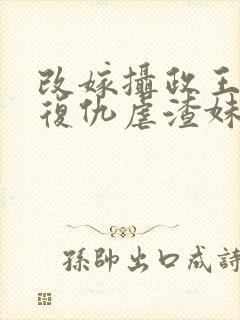 改嫁攝政王
復仇虐渣妹
孫帥出口成詩